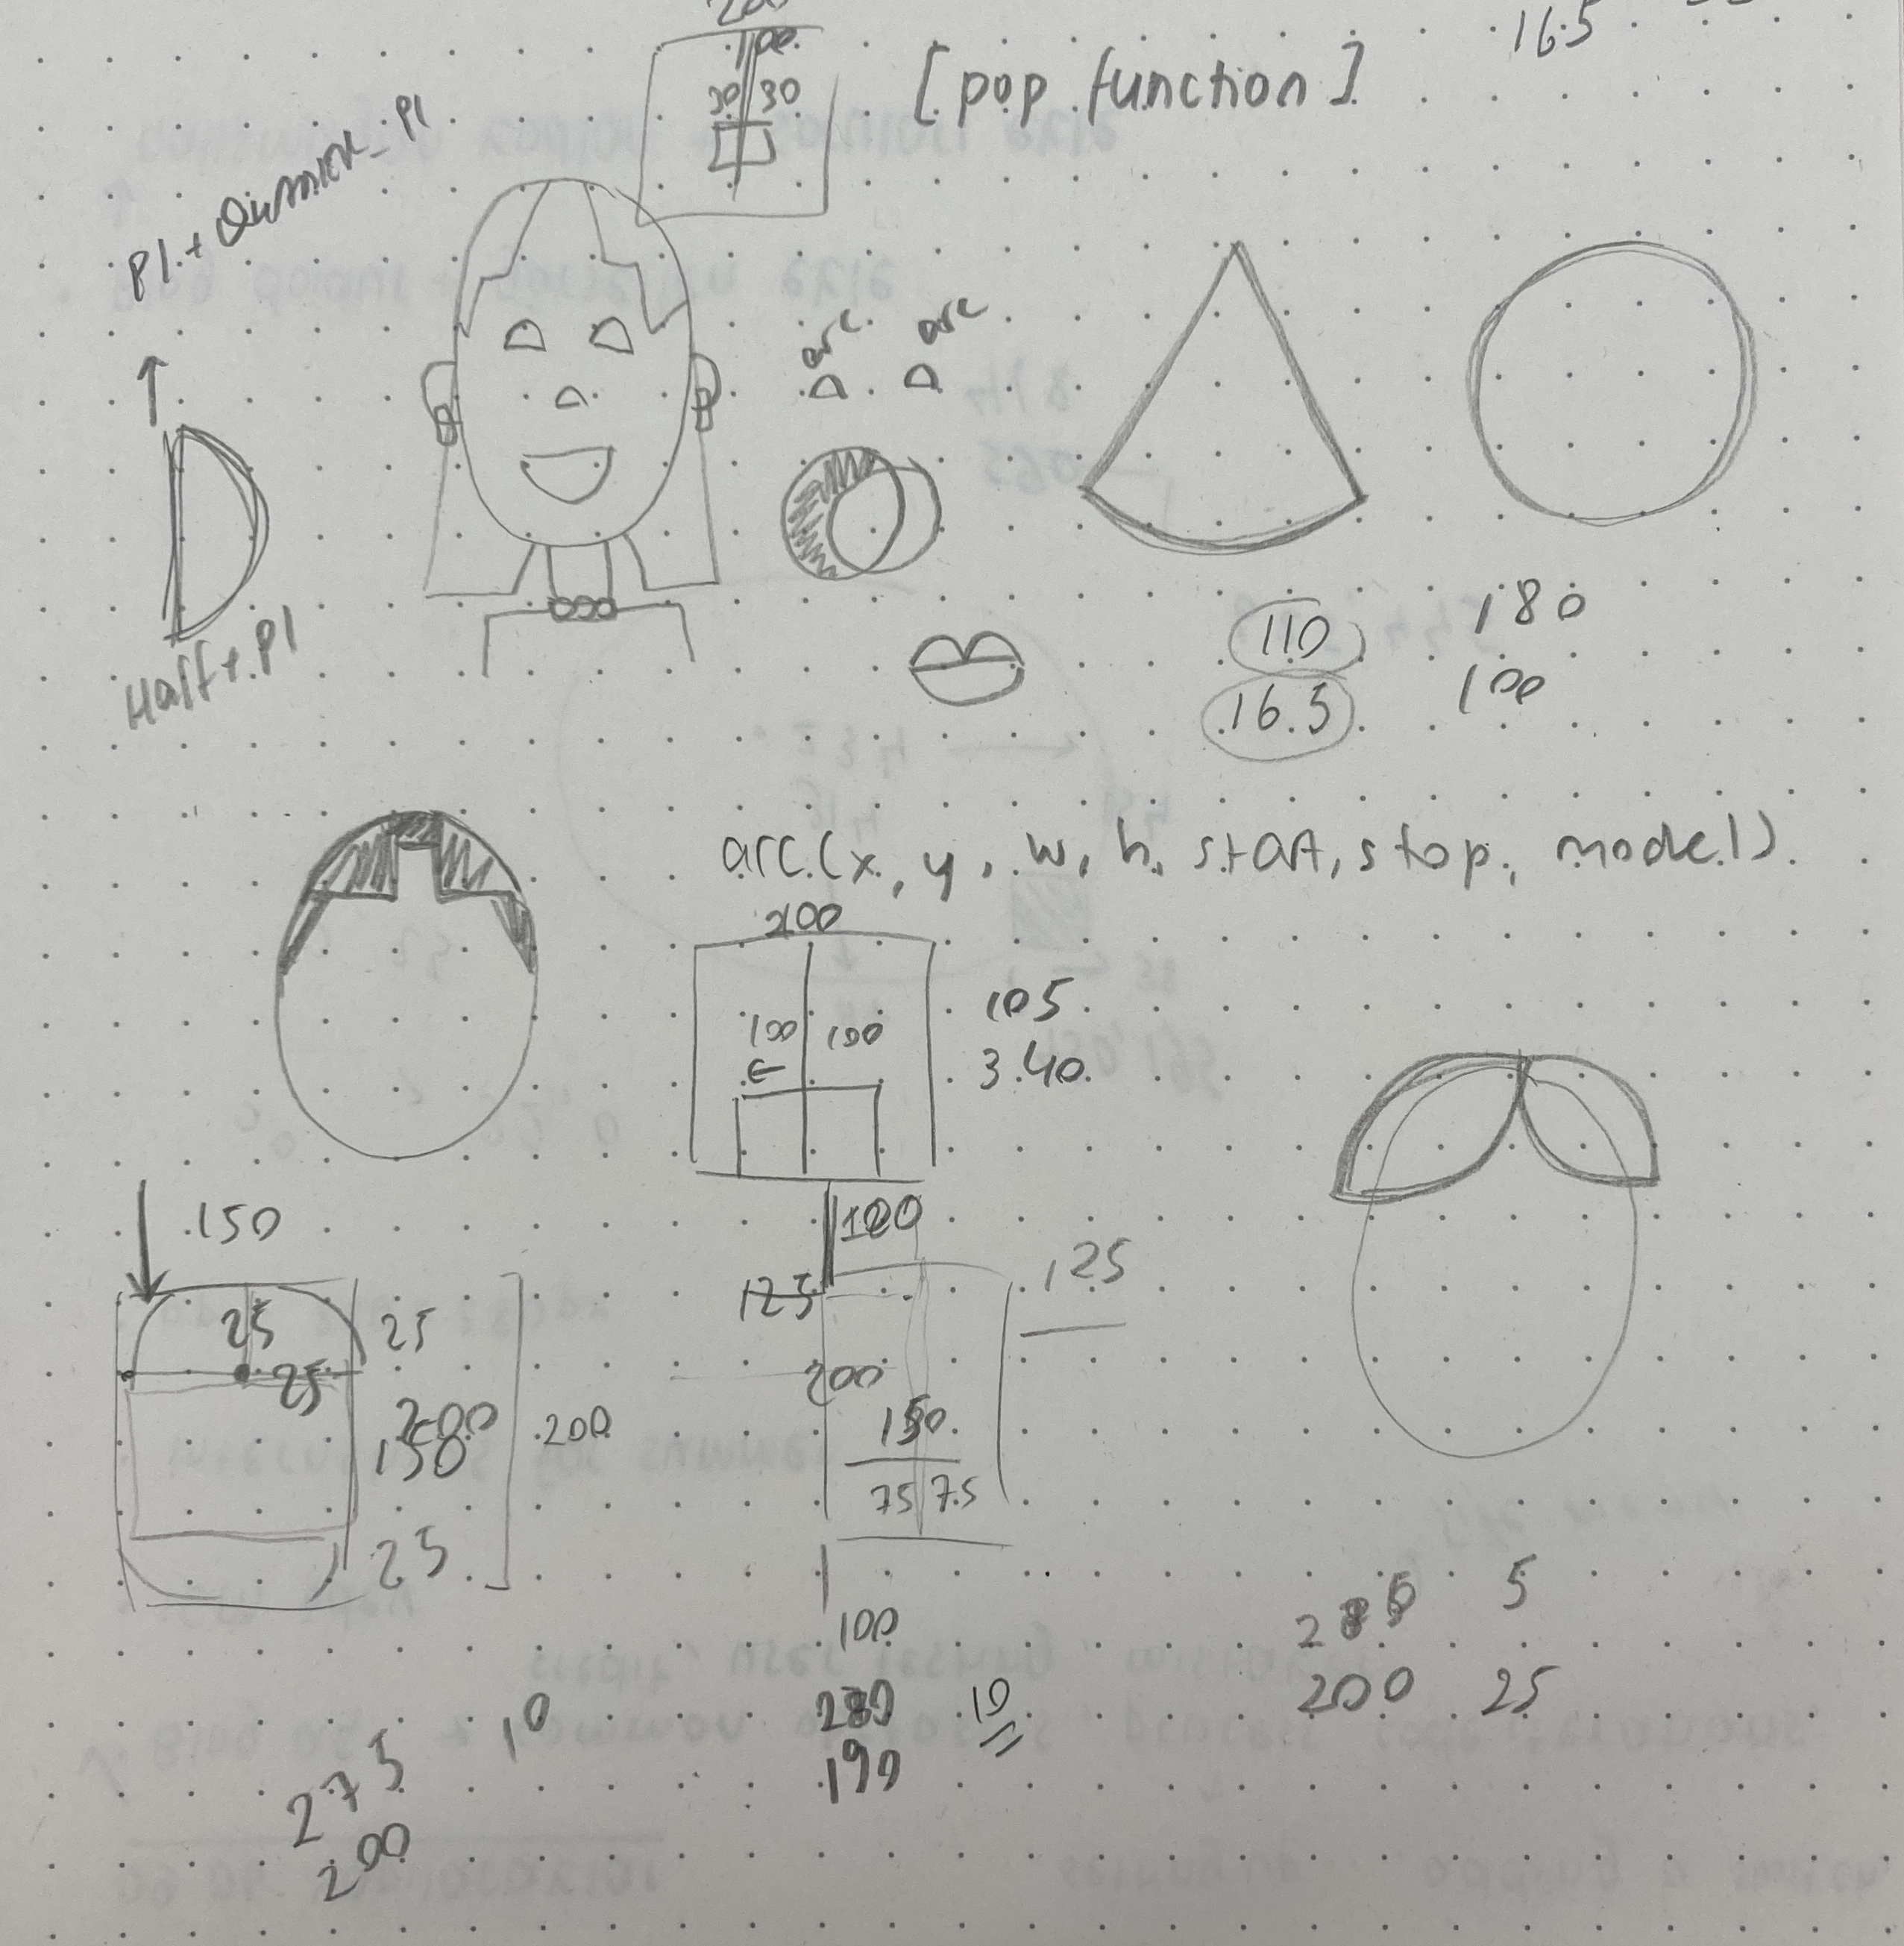 16.5
100
30 30
[pop function]
PI +
arc
arc
Half + PI
110
180
16.5
100
arc(x, y, w, h, start, stop, mode1)
200
100 100
105
3.40
150
100
125
125
25
25
25
200
200
200
150
150
75 75
25
100
5
200
25
10
10
190
275
200